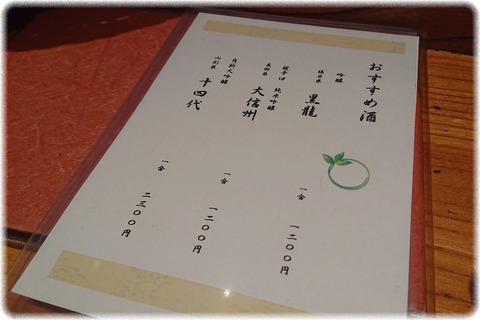 おすすめ酒
吟醸
福井県 黒龍 一合 一二〇〇円
超辛口 純米吟醸
長野県 大信州 一合 一二〇〇円
角新大吟醸
山形県 十四代 一合 二三〇〇円